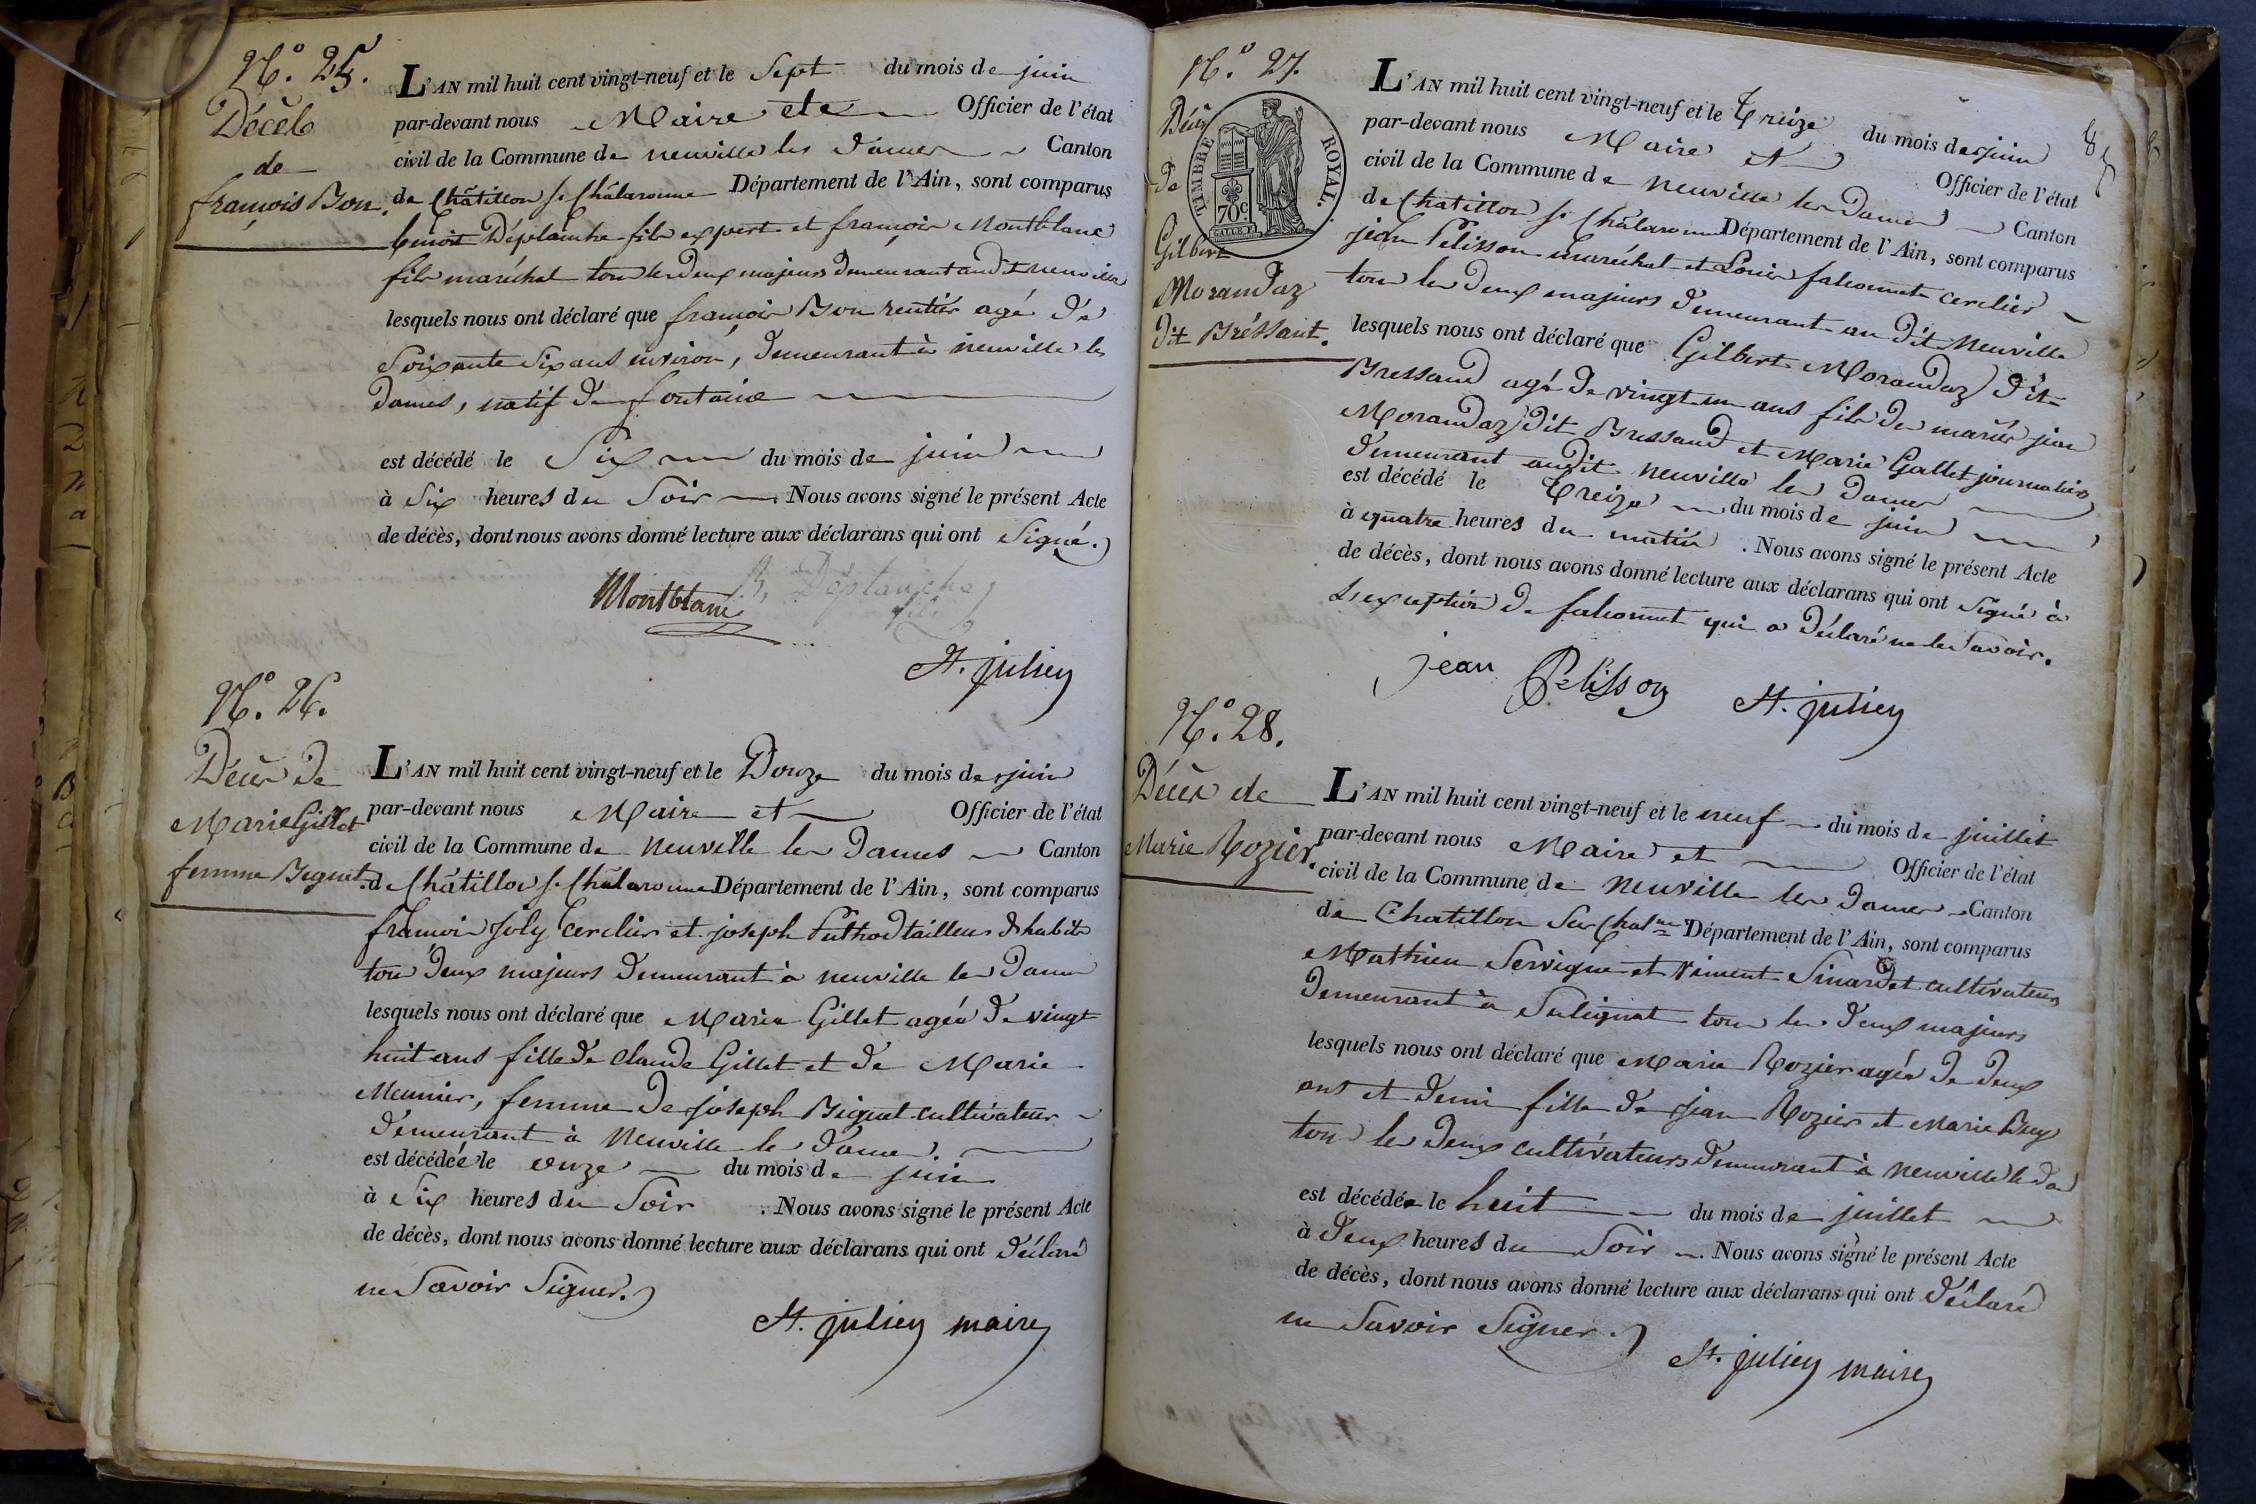 N.° 25.
Décès
de
françois Bon.
L'AN mil huit cent vingt-neuf et le Sept du mois de juin
par-devant nous Maire et Officier de l'état
civil de la Commune de neuville les Dames Canton
de Châtillon s. Châlaronne Département de l'Ain, sont comparus
benoit Déplanche fils expert et françois Montblanc
fils maréchal tous les deux majeurs demeurant audit neuville
lesquels nous ont déclaré que françois Bon rentier agé de
Soixante Six ans environ, demeurant à neuville les
Dames, natif de fontaine
est décédé le Six du mois de juin
à Six heures du Soir Nous avons signé le présent Acte
de décès, dont nous avons donné lecture aux déclarans qui ont Signé.
Montblanc B. Déplanche
fils
St. julien
N.° 26.
Décès de
Marie Gillet
femme Biguet.
L'AN mil huit cent vingt-neuf et le Douze du mois de juin
par-devant nous Maire et Officier de l'état
civil de la Commune de Neuville les Dames Canton
de Châtillon s. Châlaronne Département de l'Ain, sont comparus
françois Joly cerclier et joseph Puthod tailleur d'habits
tous deux majeurs demeurant à neuville les Dames
lesquels nous ont déclaré que Marie Gillet agée de vingt
huit ans fille de Claude Gillet et de Marie
Meunier, femme de joseph Biguet cultivateur
demeurant à Neuville les Dames
est décédée le onze du mois de juin
à Six heures du Soir . Nous avons signé le présent Acte
de décès, dont nous avons donné lecture aux déclarans qui ont déclaré
ne Savoir Signer.
St. julien maire
N.° 27.
Décès
de
Gilbert
Morandaz
dit Bréssant.
TIMBRE ROYAL.
70c
L'AN mil huit cent vingt-neuf et le Treize du mois de juin
par-devant nous Maire et Officier de l'état
civil de la Commune de Neuville les Dames Canton
de Chatillon s. Châlaronne Département de l'Ain, sont comparus
jean Pelisson maréchal et Louis falconnet cerclier
tous les deux majeurs demeurant au dit Neuville
lesquels nous ont déclaré que Gilbert Morandaz dit
Bressand agé de vingt un ans fils de mariés jean
Morandaz dit Bressand et Marie Gallet journaliers
demeurant audit neuville les Dames
est décédé le Treize du mois de juin
à quatre heures du matin . Nous avons signé le présent Acte
de décès, dont nous avons donné lecture aux déclarans qui ont Signé à
L'exception de falconnet qui a déclaré ne le Savoir.
jean Pelisson St. julien
N.° 28.
Décès de
Marie Rozier.
L'AN mil huit cent vingt-neuf et le neuf du mois de juillet
par-devant nous Maire et Officier de l'état
civil de la Commune de Neuville les Dames Canton
de Chatillon sur Chal.ne Département de l'Ain, sont comparus
Mathieu Servigne et Viment Sinardet cultivateurs
demeurant à Sulignat tous les deux majeurs
lesquels nous ont déclaré que Marie Rozier agée de deux
ans et demi fille de jean Rozier et Marie Buy
tous les deux cultivateurs demeurant à neuville les da
est décédée le huit du mois de juillet
à deux heures du Soir . Nous avons signé le présent Acte
de décès, dont nous avons donné lecture aux déclarans qui ont déclaré
ne Savoir Signer.
St. julien maire